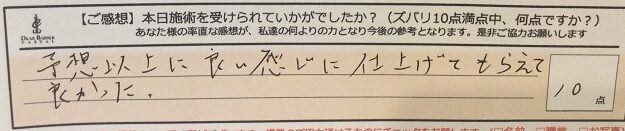 【ご感想】本日施術を受けられていかがでしたか？（ズバリ10点満点中、何点ですか？）
あなた様の率直な感想が、私達の何よりの力となり今後の参考となります。是非ご協力お願いします
DEAR BARBER
予想以上に良い感じに仕上げてもらえて
良かった。
10点